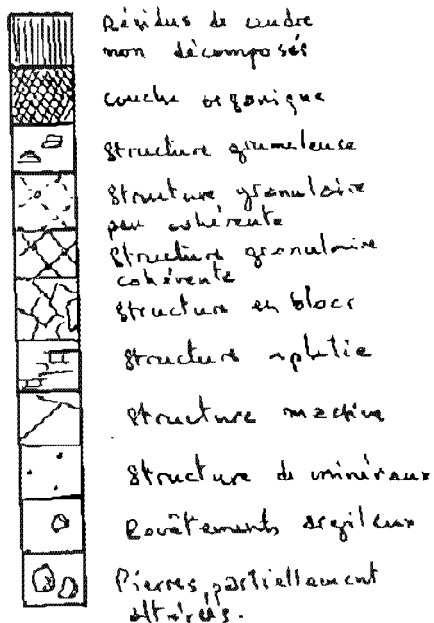 Résidus de cendre
non décomposés
couche organique
structure grumeleuse
structure granulaire
peu cohérente
structure granulaire
cohérente
structure en blocs
structure aplatie
structure massive
structure de minéraux
Revêtements argileux
Pierres partiellement
altérées.